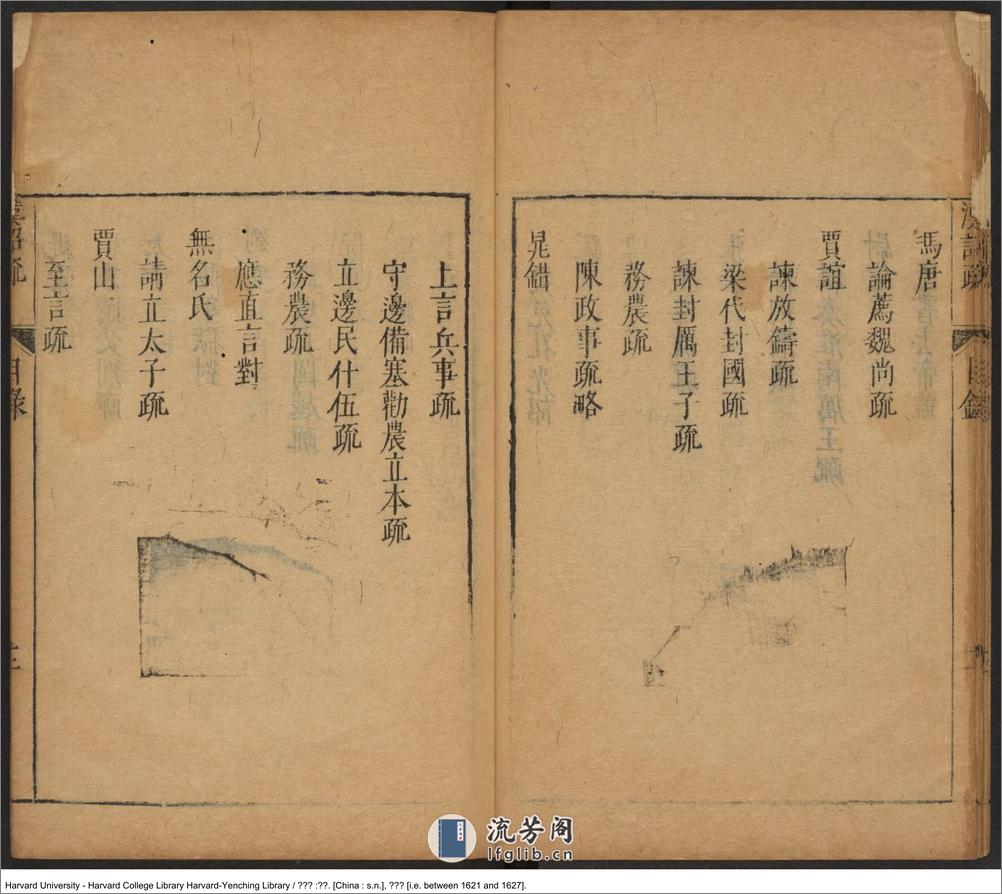 馮唐
論薦魏尚疏
賈誼
諫放鑄疏
梁代封國疏
諫封厲王子疏
務農疏
陳政事疏略
晁錯
上言兵事疏
守邊備塞勸農立本疏
立邊民什伍疏
務農疏
應直言對
無名氏
請立太子疏
賈山
至言疏
漢詔疏
目錄
流芳阁
lfglib.cn
Harvard University - Harvard College Library Harvard-Yenching Library / ??? :??. [China : s.n.], ??? [i.e. between 1621 and 1627].